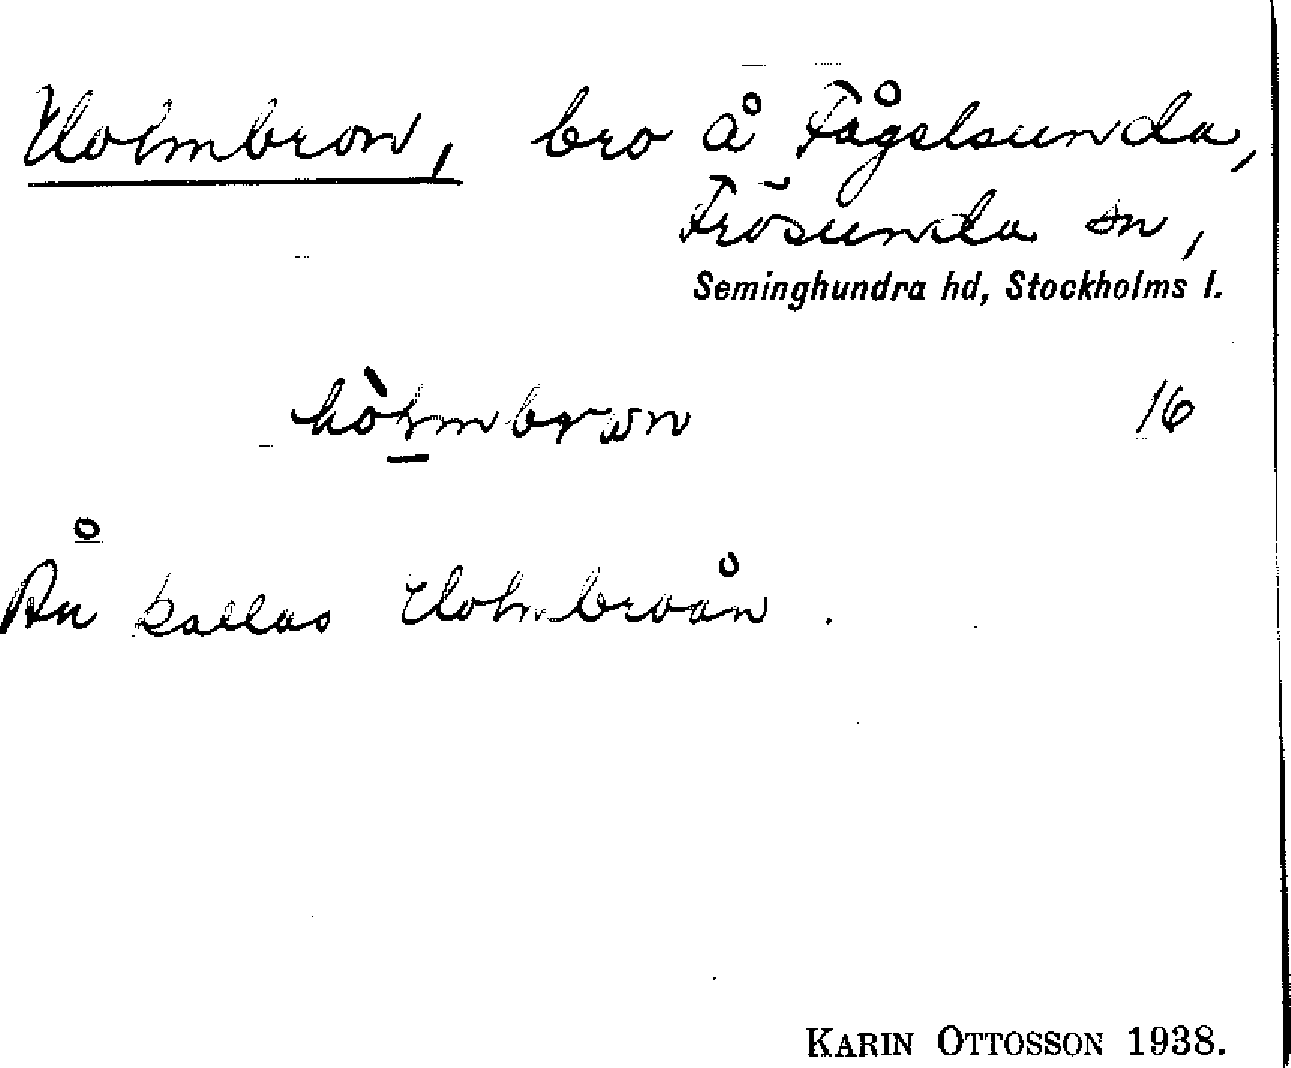 Holmbron, bro å Fågelsunda,
Frösunda sn,
Seminghundra hd, Stockholms l.
16
Ån kallas Holmbroån.
KARIN OTTOSSON 1938.